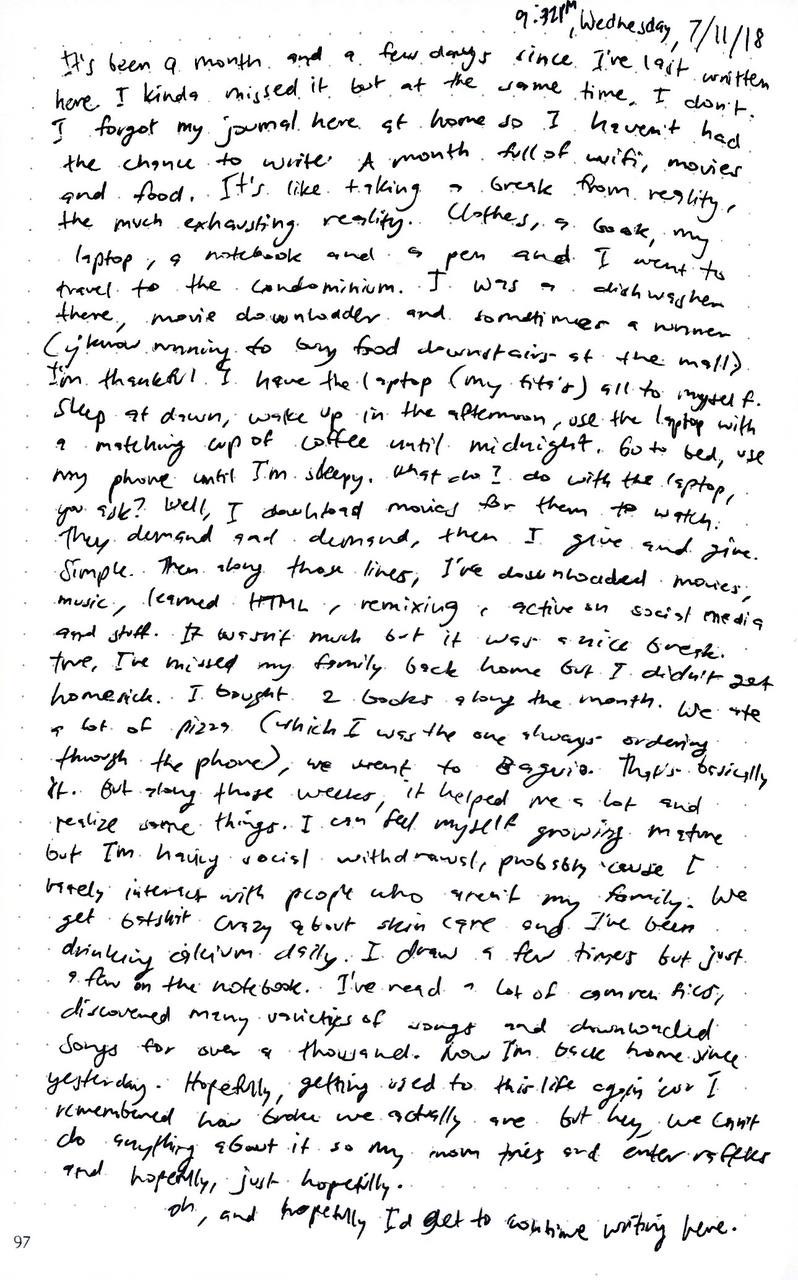 9:32PM, Wednesday, 7/11/18
It's been a month and a few days since I've last written
here. I kinda missed it but at the same time, I don't.
I forgot my journal here at home so I haven't had
the chance to write. A month full of wifi, movies
and food. It's like taking a break from reality,
the much exhausting reality. Clothes, a book, my
laptop, a notebook and a pen and I went to
travel to the condominium. I was a dishwasher
there, movie downloader and sometimes a runner
(y'know running to buy food downstairs at the mall)
I'm thankful I have the laptop (my tita's) all to myself.
Sleep at dawn, wake up in the afternoon, use the laptop with
a matching cup of coffee until midnight. Go to bed, use
my phone until I'm sleepy. What do I do with the laptop,
you ask? Well, I download movies for them to watch.
They demand and demand, then I give and give.
Simple. Then along those lines, I've downloaded movies,
music, learned HTML, remixing, active on social media
and stuff. It wasn't much but it was a nice break.
True, I've missed my family back home but I didn't get
homesick. I bought 2 books along the month. We ate
a lot of pizza (which I was the one always ordering
through the phone), we went to Baguio. That's basically
it. But along those weeks, it helped me a lot and
realize some things. I can feel myself growing mature
but I'm having social withdrawal, probably 'cause I
barely interact with people who aren't my family. We
get batshit crazy about skin care and I've been
drinking calcium daily. I draw a few times but just
a few on the notebook. I've read a lot of camren fics,
discovered many varieties of songs and downloaded
songs for over a thousand. Now I'm back home since
yesterday. Hopefully, getting used to this life again 'coz I
remembered how broke we actually are but hey, we can't
do anything about it so my mom tries and enter raffles
and hopefully, just hopefully.
oh, and hopefully I'd get to continue writing here.
97